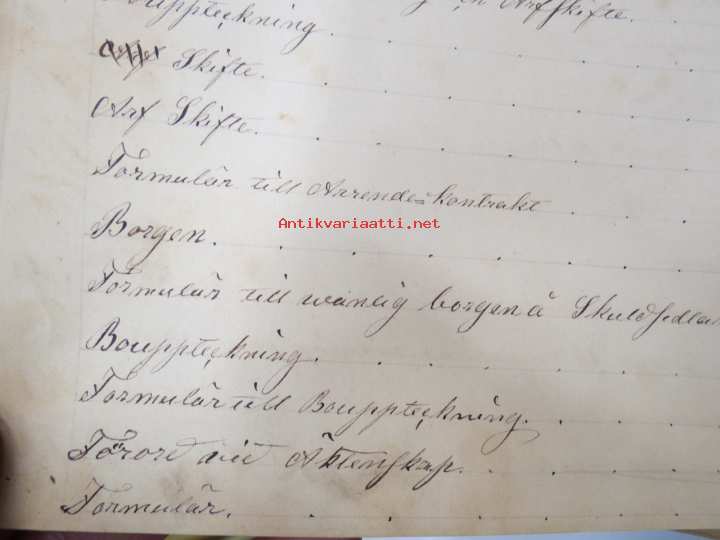 Bouppteckning. Arfskifte.
Skifte.
Arf Skifte.
Formulär till Arrende=kontrakt
Antikvariaatti.net
Borgen.
Formulär till wanlig borgen å Skuldsedlar
Bouppteckning.
Formulär till Bouppteckning.
Förord vid Äktenskap.
Formulär.